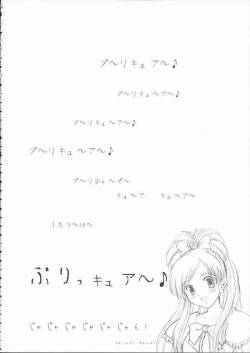 プ〜リキュア〜♪
プ〜リキュ〜ア〜♪
プ〜リキュ〜ア〜♪
プ〜リキュ〜ア〜♪
プ〜リティ〜で〜
キュ〜ア キュ〜ア
ふたつ〜は〜
ぷりっキュア〜♪
じゃじゃじゃじゃじゃん!